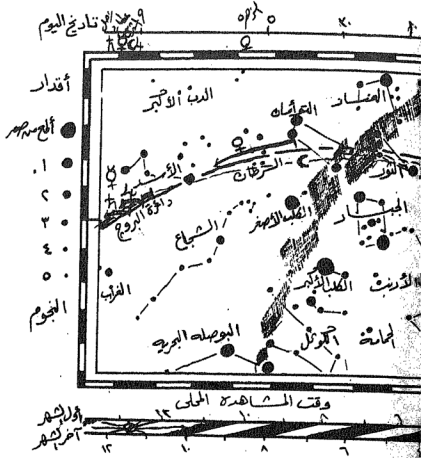 تاريخ اليوم
٥
٢٠
١٠
أقدار
ألمع من صفر
١
٢
٣
٤
٥
النجوم
الدب الأكبر
التوأمان
العناز
الثور
السرطان
الأسد
دائرة البروج
الشجاع
الكلب الأصغر
الجبار
الغراب
الكلب الأكبر
الأرنب
البوصلة البحرية
الكوثل
الحمامة
وقت المشاهدة المحلى
أول الشهر
١٢
١٠
٨
٦
آخر الشهر
١٢
١٠
٨
٦